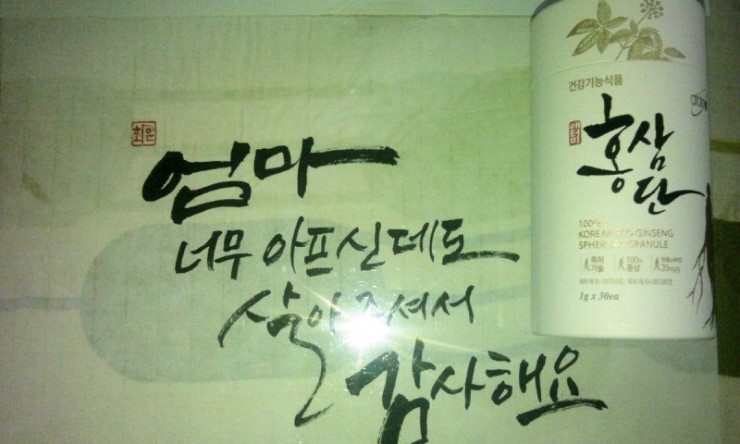 엄마
너무 아프신데도
살아 주셔서
감사해요
건강기능식품
홍삼단
100%
KOREAN RED GINSENG
SPHERICAL GRANULE
특허 기술
100% 홍삼
20mg/g
1g x 30ea